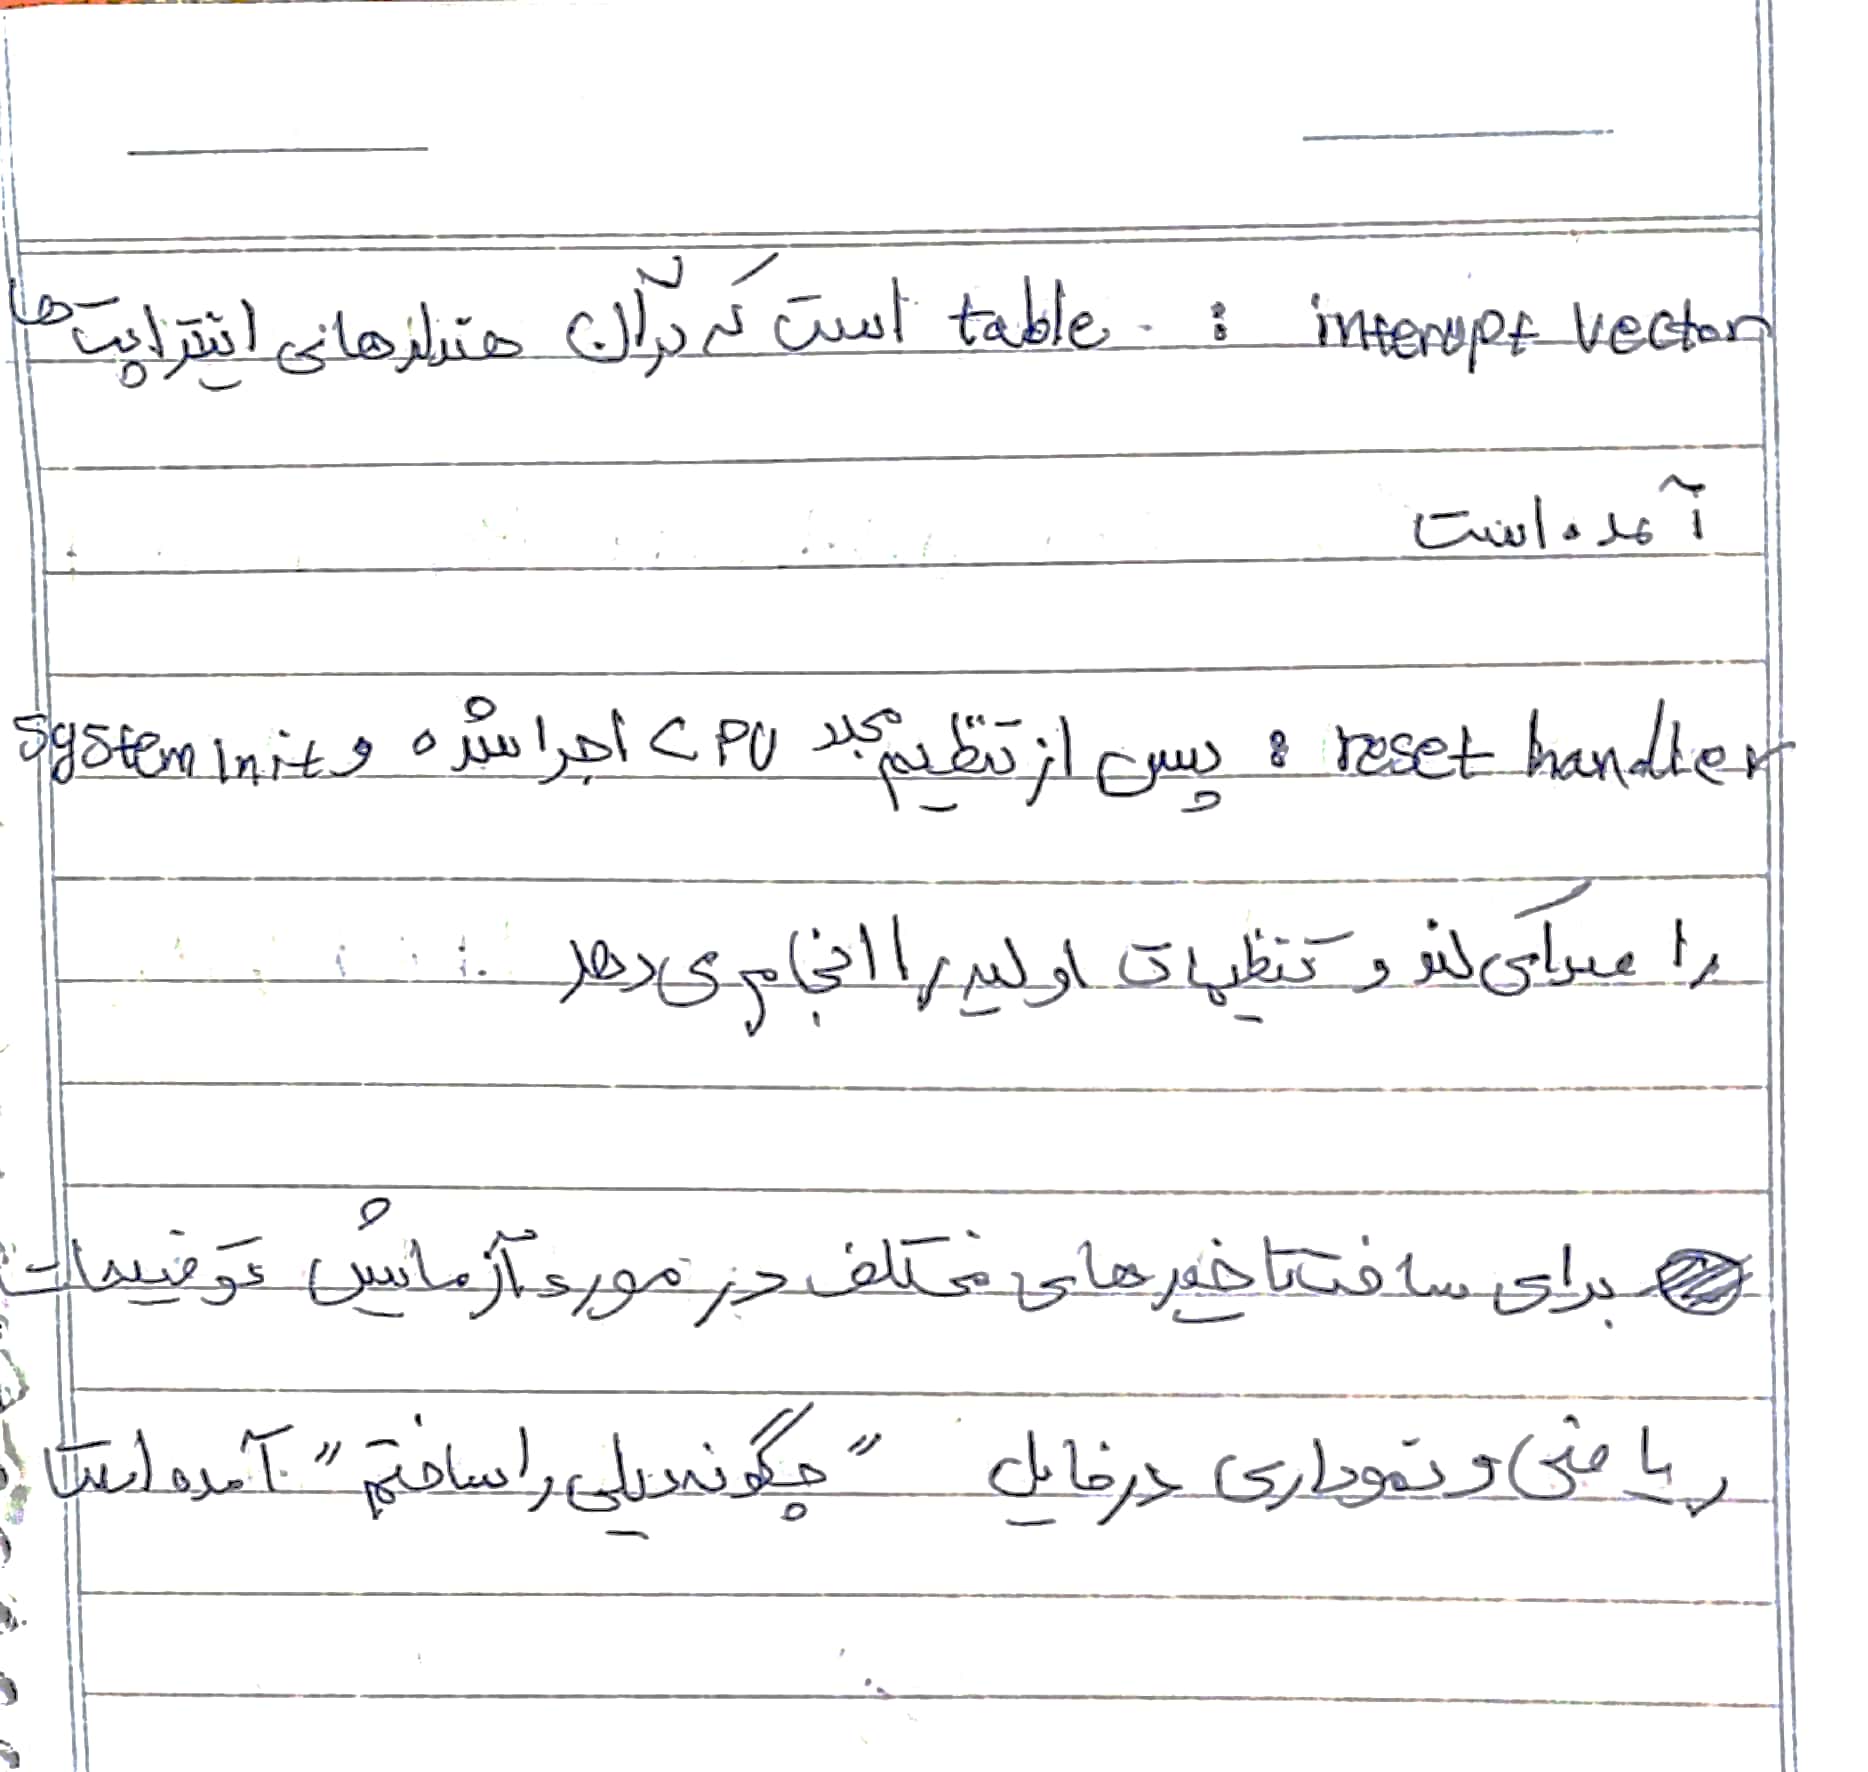 interupt vector : table است که در آن هندلرهای اینتراپت ها
آمده است
reset handler : پس از تنظیم مجدد CPU اجرا شده و System Init
را صدا می کند و تنظیمات اولیه را انجام می دهد
برای ساخت تاخیرهای مختلف در مورد آزمایش توضیحات
ریاضی و نموداری در فایل "چگونه دیلی را ساختم" آمده است